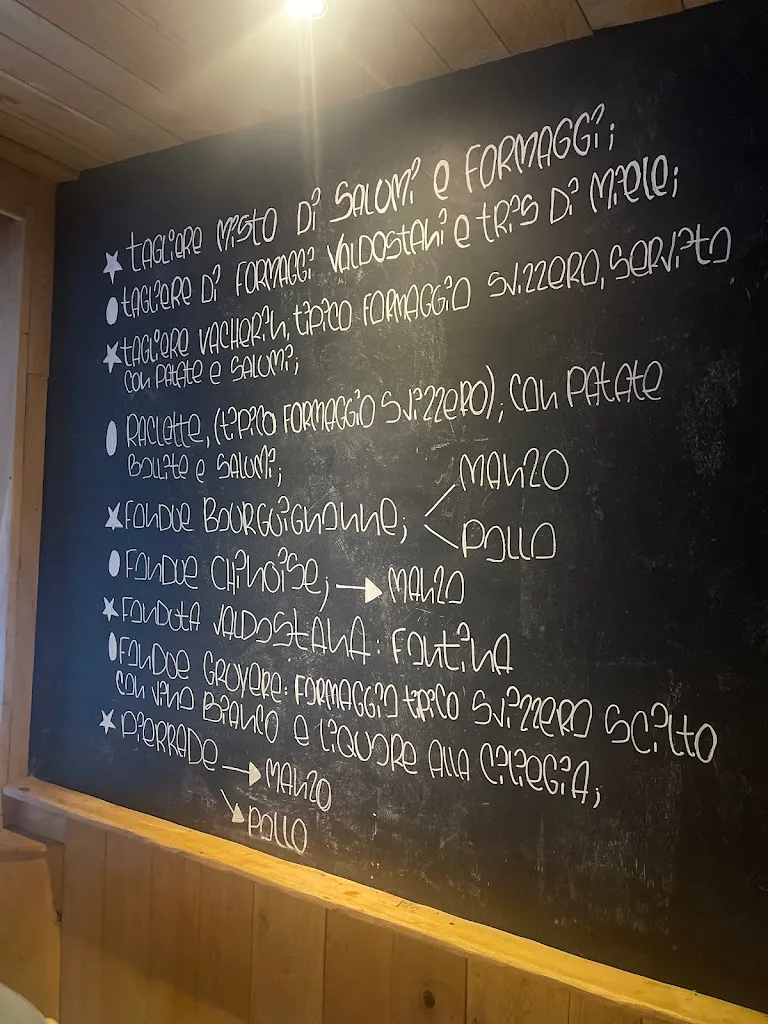 ★ TAGLIERE MISTO DI SALUMI E FORMAGGI;
● TAGLIERE DI FORMAGGI VALDOSTANI E TRIS DI MIELE;
★ TAGLIERE VACHERIN, TIPICO FORMAGGIO SVIZZERO, SERVITO
CON PATATE E SALUMI;
● RACLETTE, (TIPICO FORMAGGIO SVIZZERO), CON PATATE
BOLLITE E SALUMI;
★ FONDUE BOURGUIGNONNE; MANZO
POLLO
● FONDUE CHINOISE; → MANZO
★ FONDUTA VALDOSTANA: FONTINA
● FONDUE GRUYERE: FORMAGGIO TIPICO SVIZZERO SCIOLTO
CON VINO BIANCO E LIQUORE ALLA CILIEGIA;
★ PIERRADE → MANZO
↘ POLLO